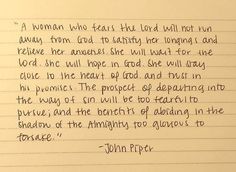 "A woman who fears the Lord will not run
away from God to satisfy her longings and
relieve her anxieties. She will wait for the
Lord. She will hope in God. She will stay
close to the heart of God and trust in
his promises. The prospect of departing into
the way of sin will be too fearful to
pursue; and the benefits of abiding in the
shadow of the Almighty too glorious to
forsake."
-John Piper